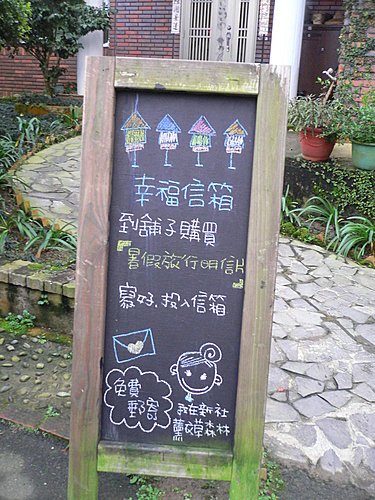 幸福信箱
到舖子購買
「暑假旅行明信片」
寫好,投入信箱
免費
郵寄
我在新社
薰衣草森林